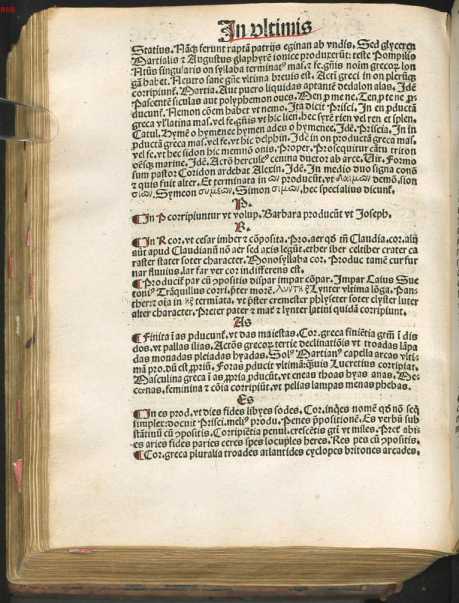 In vltimis
Statius. Nāq̃ ferunt raptā patrijs eginan ab vndis. Sed glyceren
Martialis ⁊ Augustus glaphyrē ionice produxerūt: teste Pompilio
mas. ⁊ fe. noim grecoꝝ lon
gā habet. Neutro sane vltima breuis est. Acti greci in on plerūq̨
corripiunt. Martia. Aut puero liquidas aptantē dedalon alas. Idē
Pascentē siculas aut polyphemon oues.
ducunt. Nemon cōem habet vt nemo. Ita dicit Prisci. In en ꝓductā
greca vt latina mas. vt hic lien. hec syrē rien vel ren et splen.
Catul. Hymē o hymenee hymen ades o hymenee. Idē. Priscia. In in
ꝓductā greca mas. vel fe. vt hic delphin. Idē in on productā greca mas.
vel fe. vt hec sidon hic memnō onis. Proper. Prosequitur cātu triton
oēsq̨ marine. Idē. Acrō herculeꝰ cenina ductor ab arce. Uir. Formo
sum pastor Coridon ardebat Alexin. Idē. In medio duo signa conō
⁊ quis fuit alter. Et terminata in ων producūt. vt δαίμων demō. sion
σιων. Symeon συμεων. Simon σιμων. hec specialius dicunt.
P.
In P corripiuntur vt volup. Barbara producūt vt Joseph.
R.
In R cor. vt cesar imber ⁊ cōposita. Pro. aer qd̄ m̄ Claudia. cor. aliq̄
sūt apud Claudianū nō aer sed aris legūt. erher iber celtiber crater ca
raster stater soter character. Monosyllaba cor. Produc tamē cur fur
nar fluuius. lar far ver cor indifferens est.
Producif par cū ꝯpositis dispar impar cōpar. Impar Caius Sue
toniꝰ Trāquillus corri. Lynter vltima lōga. Pan
ther: ⁊ oīa in ηρ termīata. vt pster cremester phlyseter soter clyster luter
alter character. Preter pater ⁊ mat̃ ⁊ lynter latini quidā corripiunt.
As
Finita ī as ꝓducunt. vt das maiestas. Cor. greca finiētia geītm̄ ī dis
dos. vt pallas ilias. Actōs grecoꝝ tertie declinatiōis vt troadas lāpa
das monadas pleiadas hyadas. Solꝰ Martianꝰ capella arcas vlti
mā pro. Foras ꝓducit vltimā: quis Lucretius corripiat.
Masculina greca ī as ꝓpria ꝓducūt. vt eneas thoas hyas anas. Me
cenas. feminina ⁊ cōia corripiūt. vt pelias lampas menas phebas.
Es
In es prod. vt dies fides libyes sodes. Cor. indeᵽes nomē qd̄ nō seq̄
simplex: docuit Prisci. meliꝰ produ. Penes ꝓpositionē. Es verbū sub
stātiuū cū ꝯpositis. Corripiētia penul. crescētis gtī vt miles. Preꝯ abi
es aries fides paries ceres spes locuples heres. Res pes cū ꝯpositis.
Cor. greca pluralia troades atlantides cyclopes britones arcades.